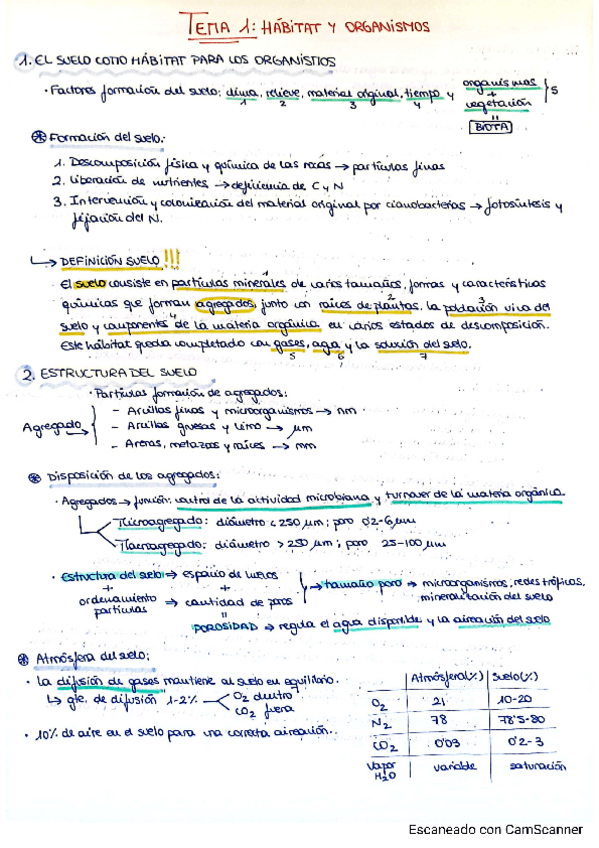 TEMA 1: HÁBITAT Y ORGANISMOS
1. EL SUELO COMO HÁBITAT PARA LOS ORGANISMOS
· Factores formación del suelo: clima, relieve, material original, tiempo y organismos + vegetación } 5
1 2 3 4 =
BIOTA
⊛ Formación del suelo:
1. Descomposición física y química de las rocas → partículas finas
2. Liberación de nutrientes → deficiencia de C y N
3. Intervención y colonización del material original por cianobacterias → fotosíntesis y
fijación del N.
↳ DEFINICIÓN SUELO !!!
El suelo consiste en partículas minerales de varios tamaños, formas y características
químicas que forman agregados, junto con raíces de plantas, la población viva del
suelo y componentes de la materia orgánica en varios estados de descomposición.
Este hábitat queda completado con gases, agua y la solución del suelo.
5 6 7
2. ESTRUCTURA DEL SUELO
· Partículas formación de agregados:
Agregado
- Arcillas finas y microorganismos → nm
- Arcillas gruesas y limo → µm
- Arenas, metazoos y raíces → mm
⊛ Disposición de los agregados:
· Agregados → función: control de la actividad microbiana y turnover de la materia orgánica
Microagregado: diámetro < 250 µm; poro 0'2-6 µm
Macroagregado: diámetro > 250 µm; poro 25-100 µm
· Estructura del suelo → espacio de huecos
+ + → tamaño poro → microorganismos, redes tróficas,
ordenamiento partículas → cantidad de poros mineralización del suelo
=
POROSIDAD → regula el agua disponible y la aireación del suelo
⊛ Atmósfera del suelo:
· La difusión de gases mantiene al suelo en equilibrio.
↳ gte. de difusión 1-2% O2 dentro
CO2 fuera
· 10% de aire en el suelo para una correcta aireación.
Atmósfera(%) Suelo(%)
O2 21 10-20
N2 78 78'5-80
CO2 0'03 0'2-3
Vapor H2O variable saturación
Escaneado con CamScanner